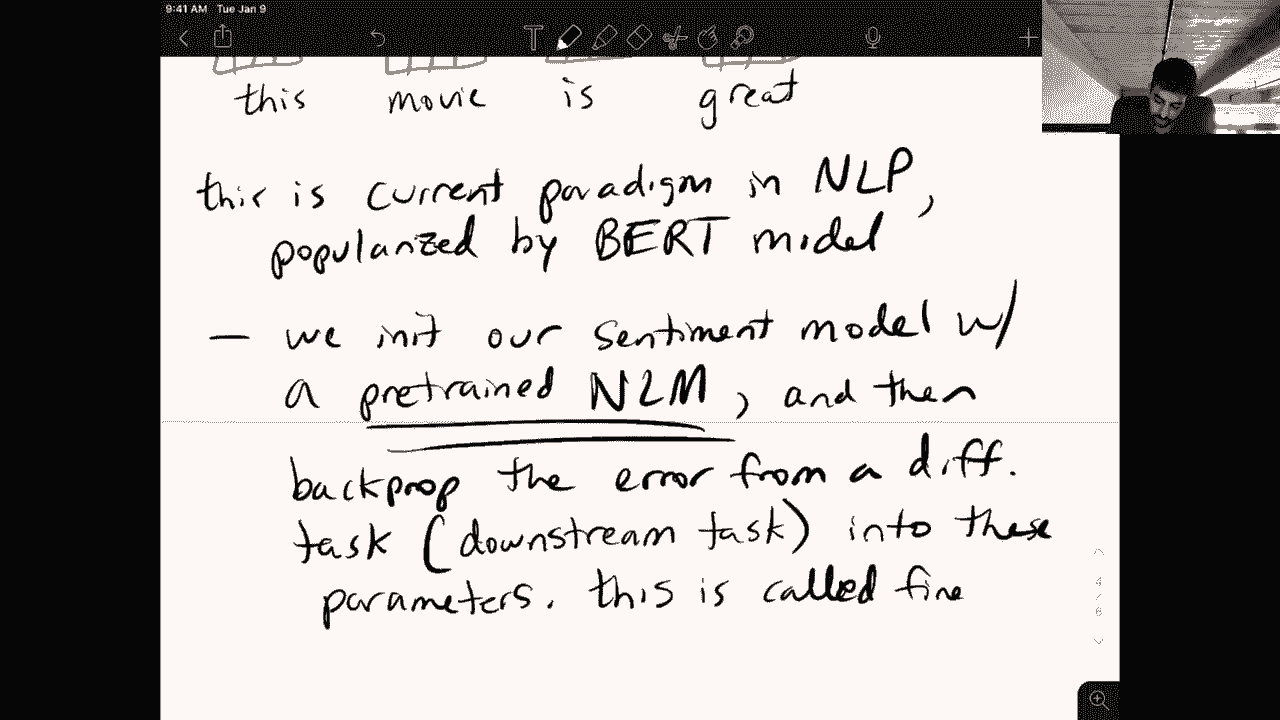 9:41 AM Tue Jan 9
this movie is great
this is current paradigm in NLP,
popularized by BERT model
— we init our sentiment model w/
a pretrained NLM, and then
backprop the error from a diff.
task (downstream task) into these
parameters. this is called fine
4 / 6